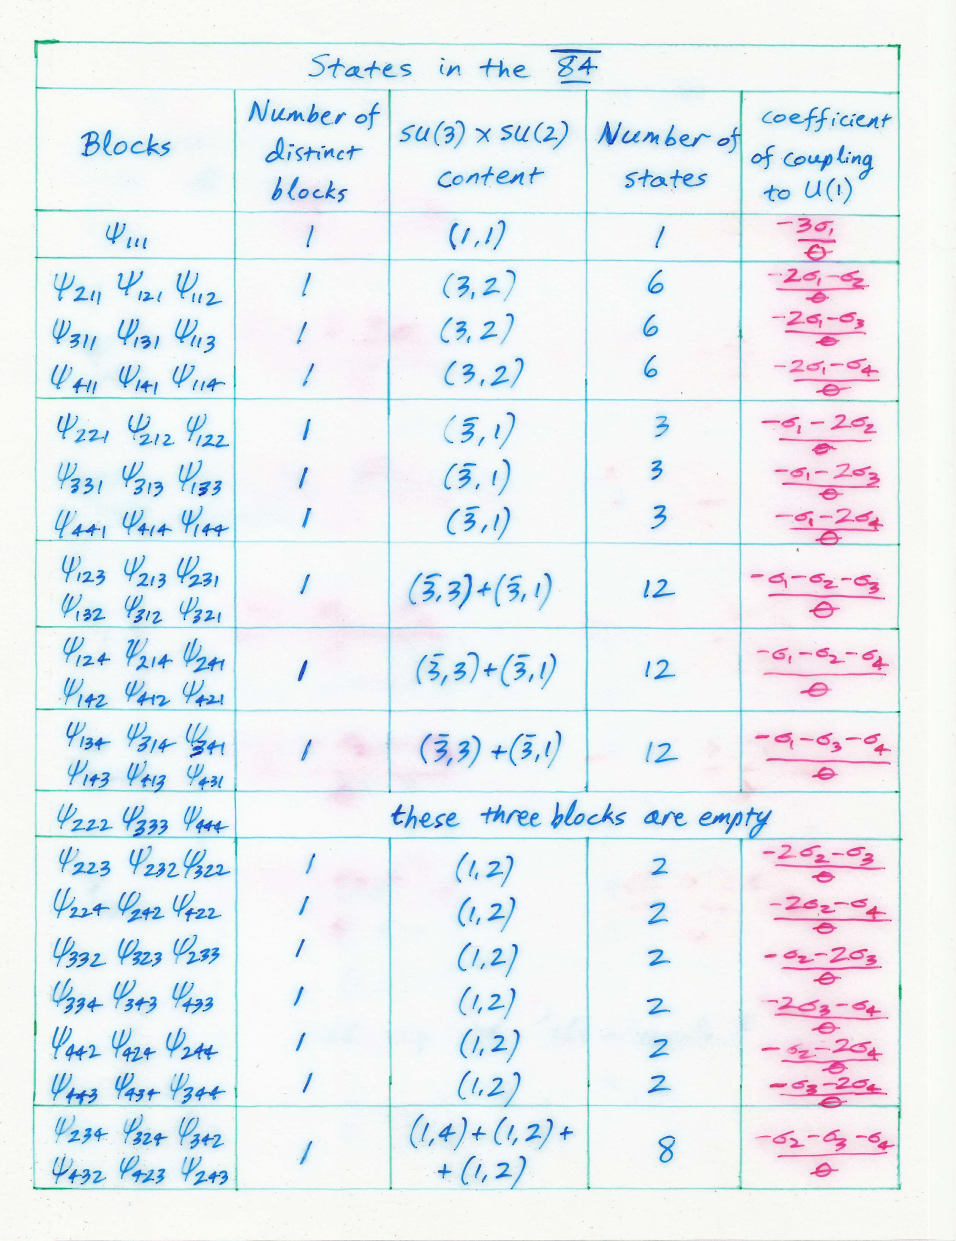 States in the 8̅4̅
Blocks
Number of distinct blocks
SU(3) x SU(2) content
Number of states
coefficient of coupling to U(1)
ψ111 1 (1,1) 1 -3σ1/θ
ψ211 ψ121 ψ112 1 (3,2) 6 -2σ1-σ2/θ
ψ311 ψ131 ψ113 1 (3,2) 6 -2σ1-σ3/θ
ψ411 ψ141 ψ114 1 (3,2) 6 -2σ1-σ4/θ
ψ221 ψ212 ψ122 1 (3̅,1) 3 -σ1-2σ2/θ
ψ331 ψ313 ψ133 1 (3̅,1) 3 -σ1-2σ3/θ
ψ441 ψ414 ψ144 1 (3̅,1) 3 -σ1-2σ4/θ
ψ123 ψ213 ψ231
ψ132 ψ312 ψ321 1 (3̅,3)+(3̅,1) 12 -σ1-σ2-σ3/θ
ψ124 ψ214 ψ241
ψ142 ψ412 ψ421 1 (3̅,3)+(3̅,1) 12 -σ1-σ2-σ4/θ
ψ134 ψ314 ψ341
ψ143 ψ413 ψ431 1 (3̅,3)+(3̅,1) 12 -σ1-σ3-σ4/θ
ψ222 ψ333 ψ444 these three blocks are empty
ψ223 ψ232 ψ322 1 (1,2) 2 -2σ2-σ3/θ
ψ224 ψ242 ψ422 1 (1,2) 2 -2σ2-σ4/θ
ψ332 ψ323 ψ233 1 (1,2) 2 -σ2-2σ3/θ
ψ334 ψ343 ψ433 1 (1,2) 2 -2σ3-σ4/θ
ψ442 ψ424 ψ244 1 (1,2) 2 -σ2-2σ4/θ
ψ443 ψ434 ψ344 1 (1,2) 2 -σ3-2σ4/θ
ψ234 ψ324 ψ342
ψ432 ψ423 ψ243 1 (1,4)+(1,2)+
+(1,2) 8 -σ2-σ3-σ4/θ